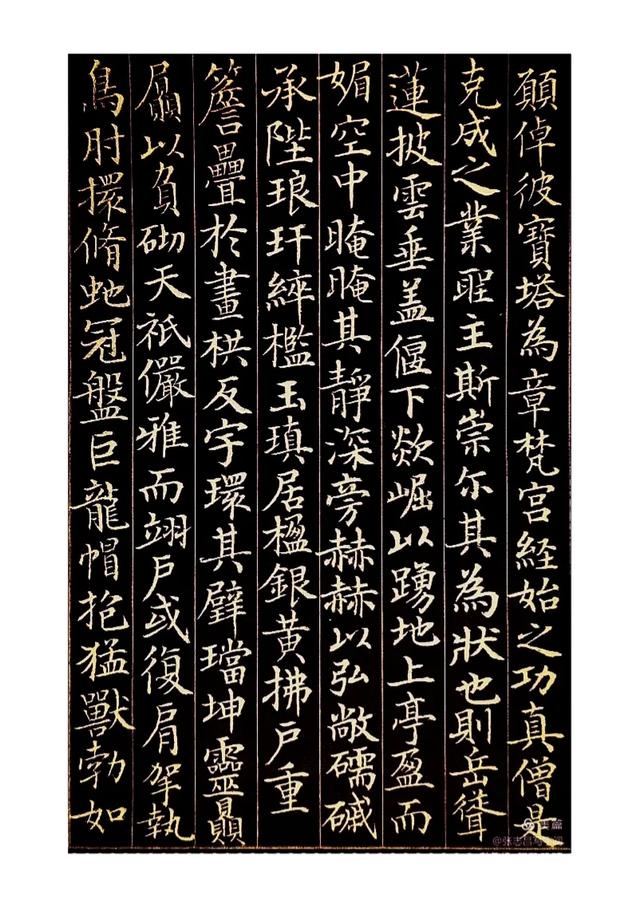 顧倬彼寶塔為章梵宮経始之功真僧是
克成之業聖主斯崇尓其為狀也則岳聳
蓮披雲垂盖偃下欻崛以踴地上亭盈而
媚空中晻晻其靜深旁赫赫以弘敞礝碱
承陛琅玕綷檻玉瑱居楹銀黃拂戶重
簷疊於畫栱反宇環其壁璫坤靈贔
屭以負砌天祇儼雅而翊戶或復肩挐執
鳥肘擐脩虵冠盤巨龍帽抱猛獸勃如
@张志昌